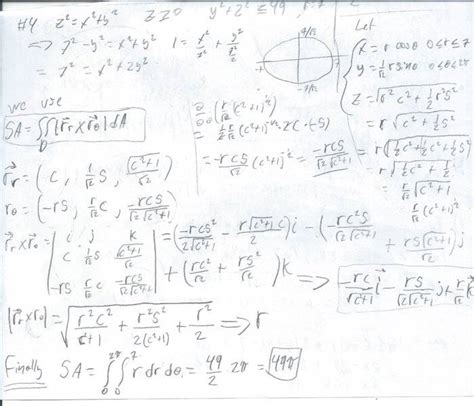 #4 z² = x²+y²  z≥0  y²+z² ≤ 49
⇒ 7²-y² = x²+y²  1 = x²/7² + y²/(7²/2)
= 7² = x²+2y²
7/√2
-7
7
-7/√2
Let
x = r cosθ 0≤r≤7
y = 1/√2 r sinθ 0≤θ≤2π
z = √(r²c² + ½r²s²)
= r√(c²+½s²)
= r√(½c²+½c²+½s²)
= r√(½c²+½)
= r/√2 √(c²+1)
= r/√2 (c²+1)^½
∂/∂θ (r/√2 (c²+1)^½)
= ½ r/√2 (c²+1)^-½ 2c·(-s)
= -rcs/√2 (c²+1)^-½ = -rcs/(√2√(c²+1))
we use
SA = ∬_D |r⃗r × r⃗θ| dA
r⃗r = (c, 1/√2 s, √(c²+1)/√2)
rθ = (-rs, r/√2 c, -rcs/(√2√(c²+1)))
r⃗r × r⃗θ = | i j k
c 1/√2 s √(c²+1)/√2
-rs r/√2 c -rcs/(√2√(c²+1)) |
= (-rcs²/(2√(c²+1)) - r√(c²+1)c/2) i - (-rc²s/(√2√(c²+1)) + rs√(c²+1)/√2) j
+ (rc²/√2 + rs²/√2) k ⇒
-rc/√(c²+1) i - rs/(√2√(c²+1)) j + r/√2 k
|r⃗r × r⃗θ| = √(r²c²/(c²+1) + r²s²/(2(c²+1)) + r²/2) ⇒ r
Finally SA = ∫₀^2π ∫₀^7 r dr dθ = 49/2 2π = 49π